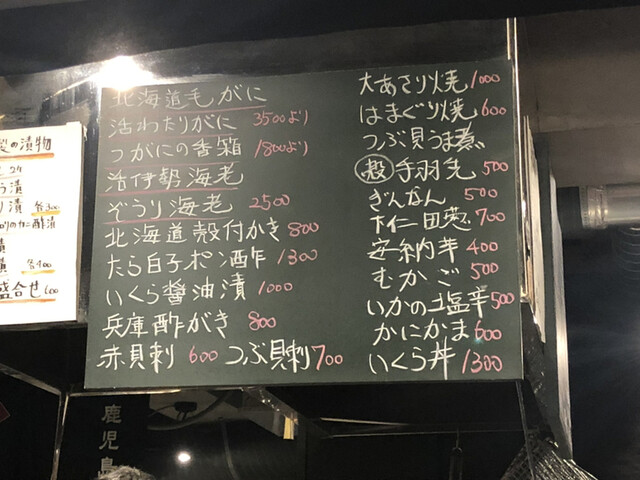 北海道毛がに
活わたりがに 3500より
つがにの香箱 1800より
活伊勢海老
ぞうり海老 2500
北海道殻付かき 800
たら白子ポン酢 1300
いくら醤油漬 1000
兵庫酢がき 800
赤貝刺 600 つぶ貝刺 700
大あさり焼 1000
はまぐり焼 600
つぶ貝うま煮
手羽先 500
ぎんなん 500
下仁田葱 700
安納芋 400
むかご 500
いかの塩辛 500
かにかま 600
いくら丼 1300
の漬物
漬 各300
各400
盛合せ 600
鹿児島